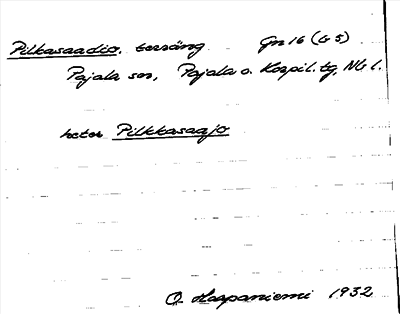 Pilkasaadio, terräng Gn 16 (G5)
Pajala sn, Pajala o. Korpil. tg, Nb l.
heter Pilkkasaajo
O. Korpaniemi 1932